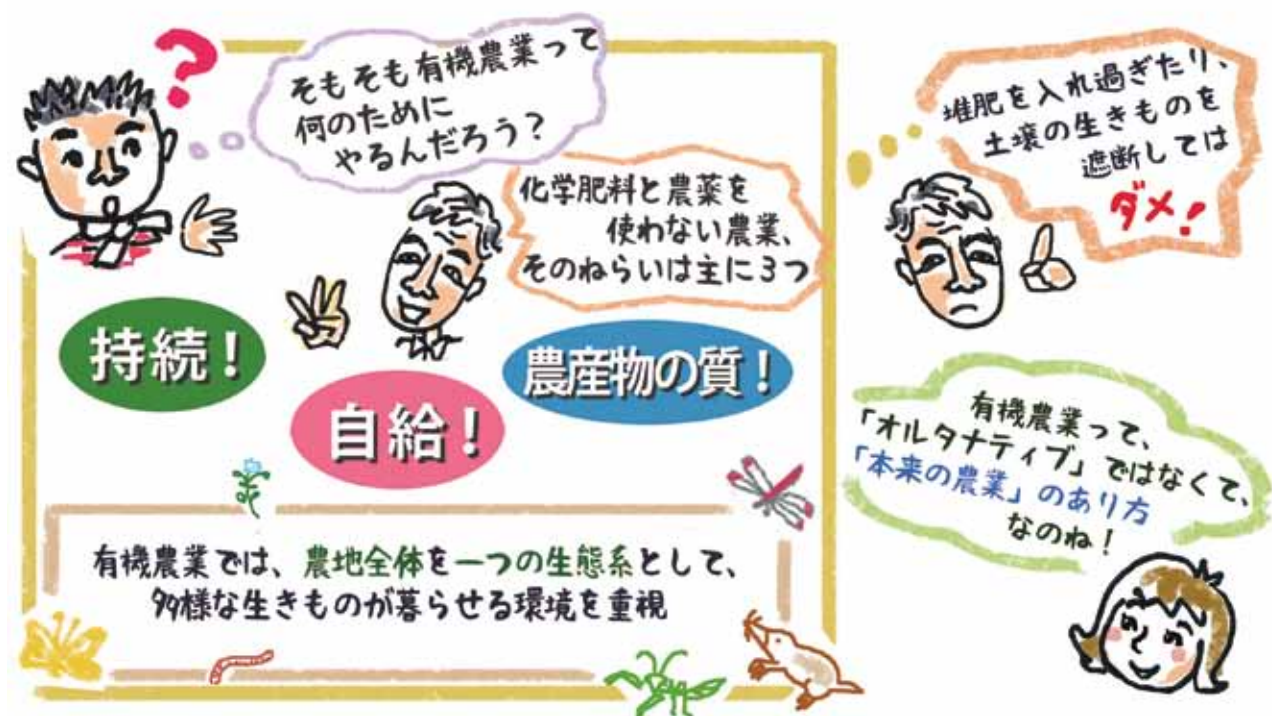 ？
そもそも有機農業って
何のために
やるんだろう？
化学肥料と農薬を
使わない農業、
そのねらいは主に3つ
持続！
自給！
農産物の質！
有機農業では、農地全体を一つの生態系として、
多様な生きものが暮らせる環境を重視
堆肥を入れ過ぎたり、
土壌の生きものを
遮断しては
ダメ！
有機農業って、
「オルタナティブ」ではなくて、
「本来の農業」のあり方
なのね！